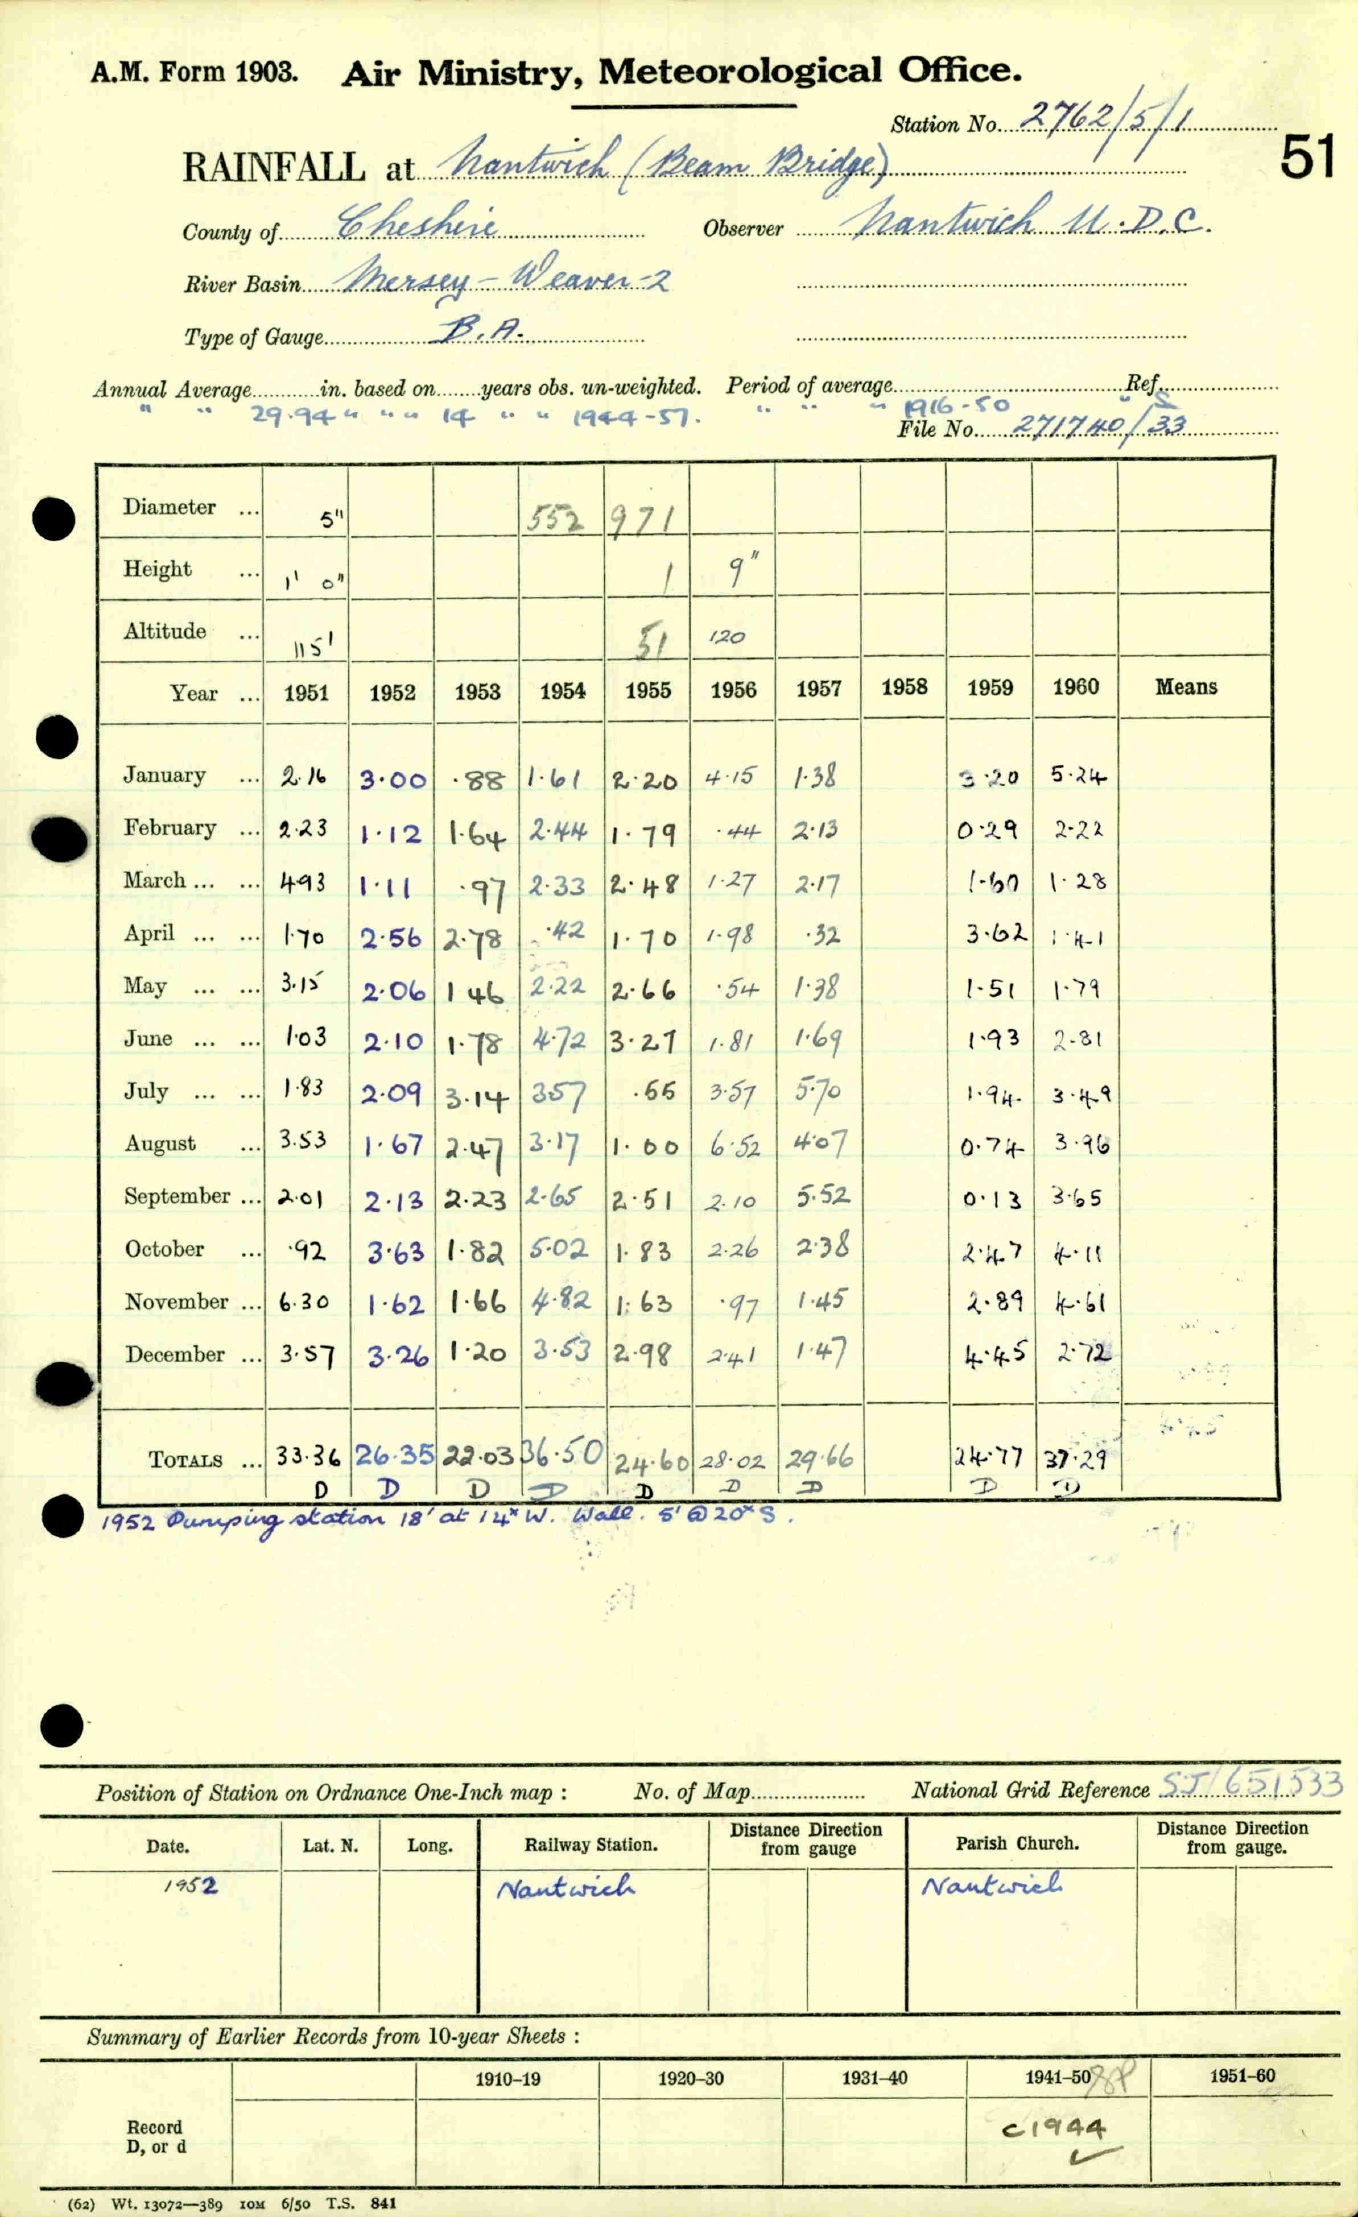 A.M. Form 1903. Air Ministry, Meteorological Office.
Station No. 2762/5/1
51
RAINFALL at Nantwich (Beam Bridge)
County of Cheshire Observer Nantwich U.D.C.
River Basin Mersey - Weaver - 2
Type of Gauge B.A.
Annual Average in. based on years obs. un-weighted. Period of average Ref.
" " 29.94 " " " 14 " " 1944-57. " " " 1916-50 " S
File No. 271740/33
Diameter ... 5" 552 971
Height ... 1' 0" 1 9"
Altitude ... 115' 51 120
Year ... 1951 1952 1953 1954 1955 1956 1957 1958 1959 1960 Means
January ... 2.16 3.00 .88 1.61 2.20 4.15 1.38 3.20 5.24
February ... 2.23 1.12 1.64 2.44 1.79 .44 2.13 0.29 2.22
March ... ... 4.93 1.11 .97 2.33 2.48 1.27 2.17 1.60 1.28
April ... ... 1.70 2.56 2.78 .42 1.70 1.98 .32 3.62 1.41
May ... ... 3.15 2.06 1 46 2.22 2.66 .54 1.38 1.51 1.79
June ... ... 1.03 2.10 1.78 4.72 3.27 1.81 1.69 1.93 2.81
July ... ... 1.83 2.09 3.14 357 .55 3.57 5.70 1.94 3.49
August ... 3.53 1.67 2.47 3.17 1.00 6.52 4.07 0.74 3.96
September ... 2.01 2.13 2.23 2.65 2.51 2.10 5.52 0.13 3.65
October ... .92 3.63 1.82 5.02 1.83 2.26 2.38 2.47 4.11
November ... 6.30 1.62 1.66 4.82 1.63 .97 1.45 2.89 4.61
December ... 3.57 3.26 1.20 3.53 2.98 2.41 1.47 4.45 2.72
TOTALS ... 33.36 26.35 22.03 36.50 24.60 28.02 29.66 24.77 37.29
D D D D D D D D D
1952 Pumping station 18' at 14x W. Wall. 5' @ 20x S.
Position of Station on Ordnance One-Inch map : No. of Map National Grid Reference SJ/651533
Date. Lat. N. Long. Railway Station. Distance Direction from gauge Parish Church. Distance Direction from gauge.
1952 Nantwich Nantwich
Summary of Earlier Records from 10-year Sheets :
1910–19 1920–30 1931–40 1941–50 1951–60
Record
D, or d
C1944
(62) Wt. 13072—389 10M 6/50 T.S. 841